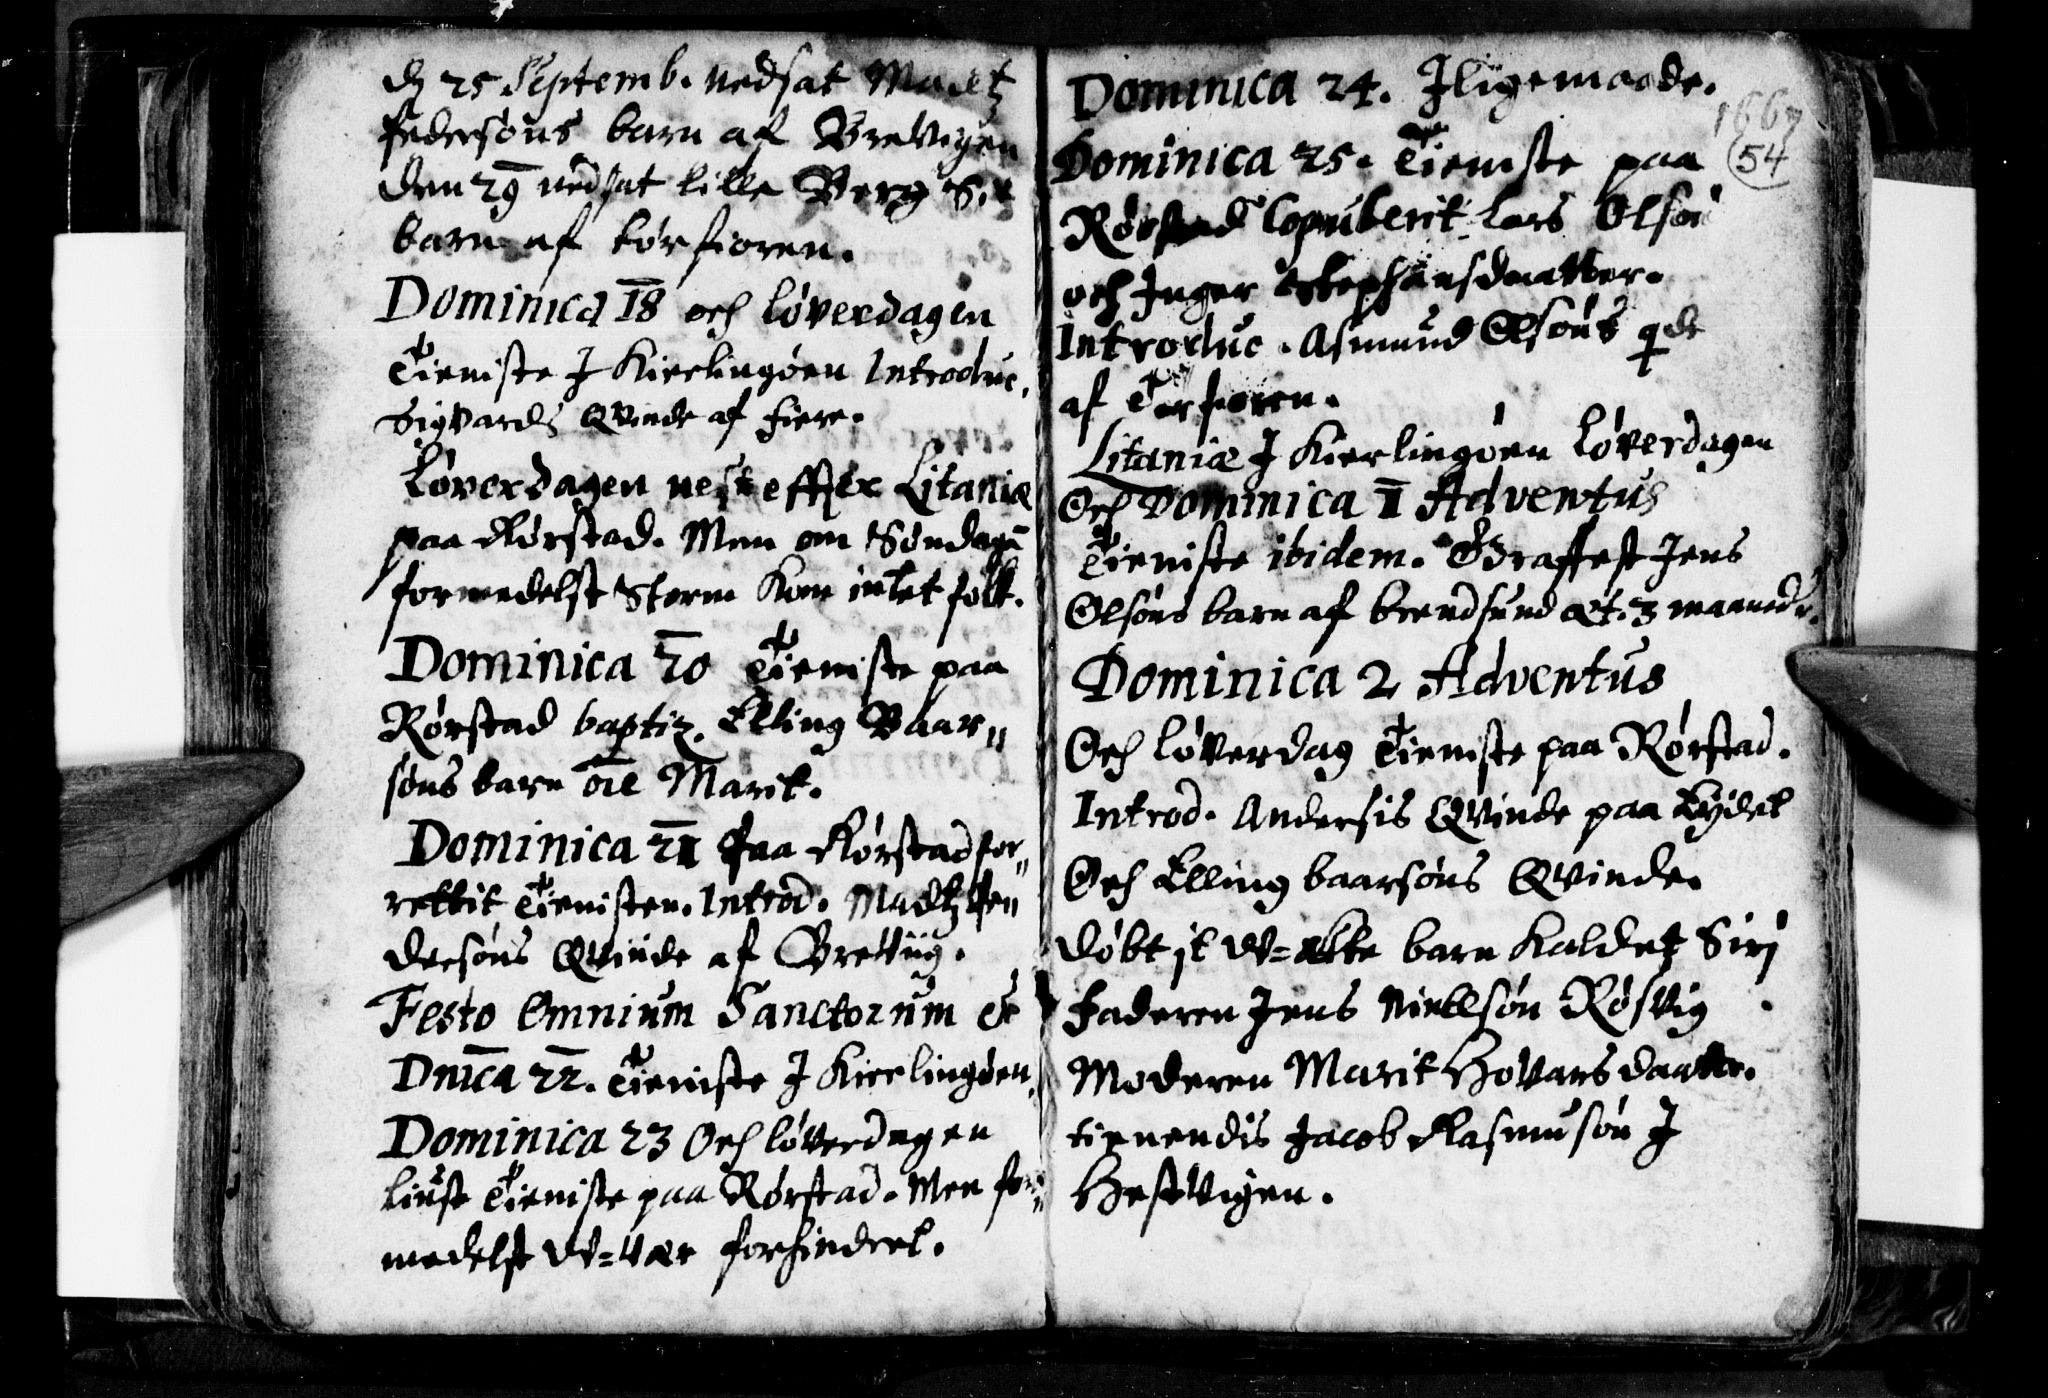 dn 25 Septemb. nedsat Madtz
Pedersøns barn af Brevigen
den 29 nedsat lille Berg S.
barn af tørfioren.
Dominica 18 och løverdagen
Tieniste J Kierlingøen Introduc.
Sigvards Qvinde af fiere.
Løverdagen nest effter Litaniæ
paa Rørstad. Men om Søndagē
formedelst Storm Kom intet folk.
Dominica 20 Tieniste paa
Rørstad baptiz. Elling Baar⹀
søns barn Marit.
Dominica 21 Paa Rørstad for⹀
rettit Tienisten. Introd. Madtz Pe⹀
dersøns Qvinde af Breviig.
Festo Omnium Sanctorum et
Dnica 22. Tieniste J Kierlingøen.
Dominica 23 Och løverdagen
liust Tieniste paa Rørstad. Men for⹀
medelst W=vær forhindret.
Dominica 24. Jligemaade.
1667
54
Dominica 25. Tieniste paa
Rørstad Copulerit Lars Olsøn
och Inger Stephansdaatter.
Introduc. Asmund Olsøns qde
af Torfioren.
Litaniæ J Kierlingøen Løverdagen
Och Dominica I Adventus
Tieniste ibidem. Graffest Jens
Olsøns barn af brendsund æt. 3 maaneder.
Dominica 2 Adventus
Och løverdag Tieniste paa Rørstad.
Introd. Andersis Qvinde paa Eydet
Och Elling baarsøns Qvinde.
døbt it W=ækte barn Kaldet Siri
Faderen Jens Nielsøn Røsvig
Moderen Marit Hovarsdaatter.
tienendis Jacob Rasmusøn J
Hestvigen.